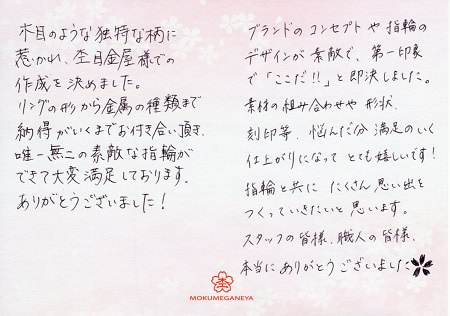 木目のような独特な柄に
惹かれ、杢目金屋様での
作成を決めました。
リングの形から金属の種類まで
納得がいくまでお付き合い頂き、
唯一無二の素敵な指輪が
できて大変満足しております。
ありがとうございました!
ブランドのコンセプトや指輪の
デザインが素敵で、第一印象
で「ここだ!!」と即決しました。
素材の組み合わせや形状、
刻印等、悩んだ分満足のいく
仕上がりになってとても嬉しいです!
指輪と共にたくさん思い出を
つくっていきたいと思います。
スタッフの皆様、職人の皆様、
本当にありがとうございました
MOKUMEGANEYA